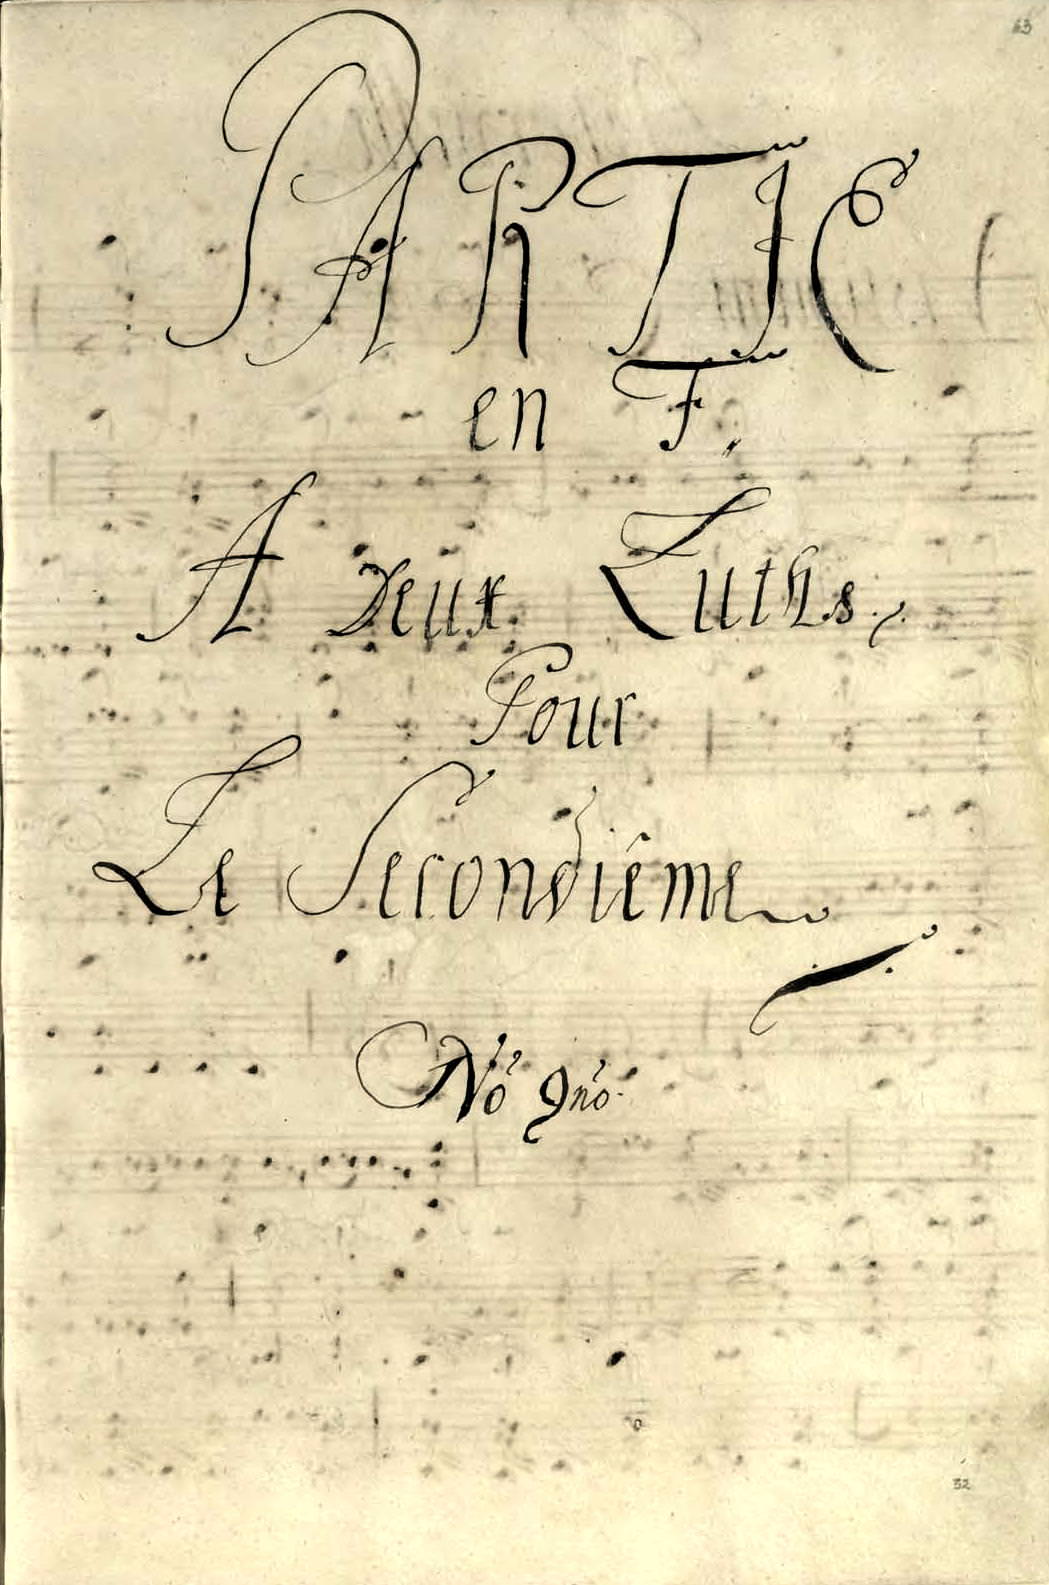 63
PARTIE
en F.
A Deux Luths.
Pour
Le Secondiéme
No 9no.
32